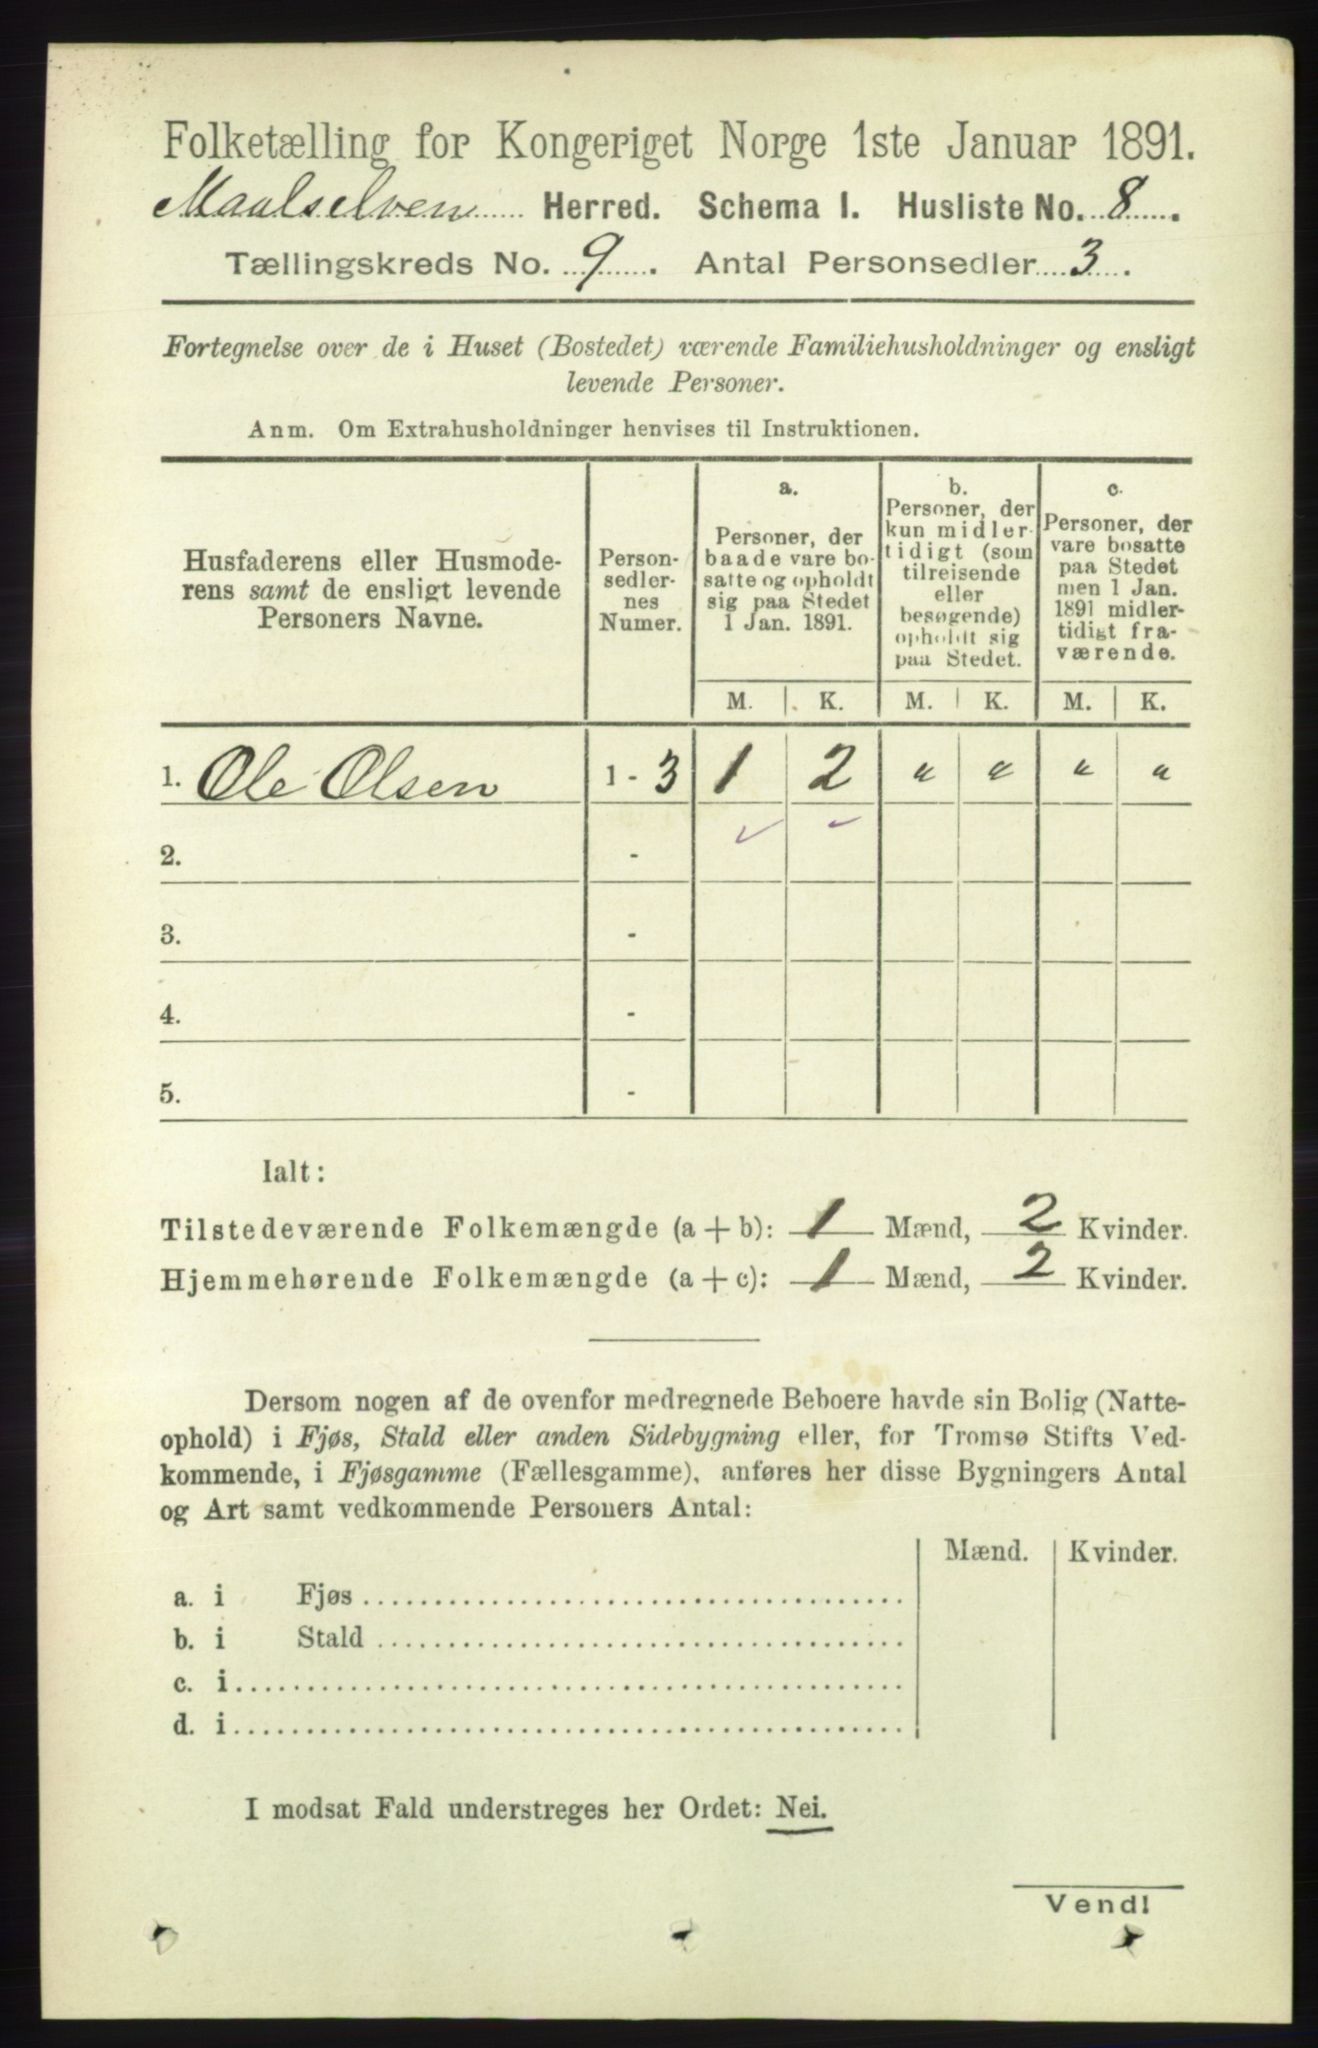 Folketælling for Kongeriget Norge 1ste Januar 1891.
Maalselven Herred. Schema I. Husliste No. 8.
Tællingskreds No. 9. Antal Personsedler 3.
Fortegnelse over de i Huset (Bostedet) værende Familiehusholdninger og ensligt
levende Personer.
Anm. Om Extrahusholdninger henvises til Instruktionen.
Husfaderens eller Husmode-
rens samt de ensligt levende
Personers Navne.
Person-
sedler-
nes
Numer.
a.
Personer, der
baade vare bo-
satte og opholdt
sig paa Stedet
1 Jan. 1891.
b.
Personer, der
kun midler-
tidigt (som
tilreisende
eller
besøgende)
opholdt sig
paa Stedet.
c.
Personer, der
vare bosatte
paa Stedet
men 1 Jan.
1891 midler-
tidigt fra-
værende.
M. K. M. K. M. K.
1. Ole Olsen 1 - 3 1 2 " " " "
2. -
3. -
4. -
5. -
Ialt:
Tilstedeværende Folkemængde (a + b): 1 Mænd, 2 Kvinder.
Hjemmehørende Folkemængde (a + c): 1 Mænd, 2 Kvinder.
Dersom nogen af de ovenfor medregnede Beboere havde sin Bolig (Natte-
ophold) i Fjøs, Stald eller anden Sidebygning eller, for Tromsø Stifts Ved-
kommende, i Fjøsgamme (Fællesgamme), anføres her disse Bygningers Antal
og Art samt vedkommende Personers Antal:
Mænd. Kvinder.
a. i Fjøs
b. i Stald
c. i
d. i
I modsat Fald understreges her Ordet: Nei.
Vend!